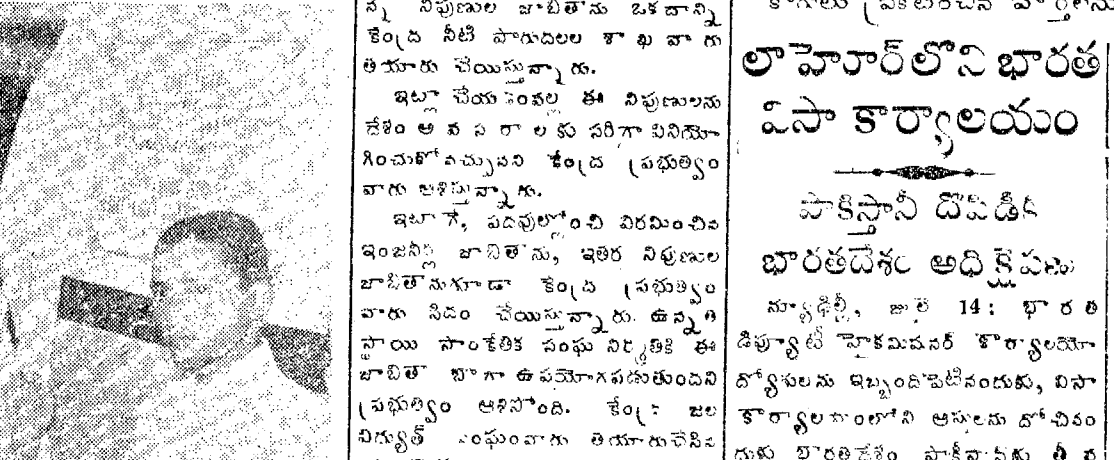 న్న నిపుణుల జాబితాను ఒకదాన్ని
కేంద్ర నీటి పారుదలల శాఖ వారు
తియారు చేయిస్తున్నారు.
ఇట్లా చేయడంవల్ల ఈ నిపుణులను
దేశం అవసరాలకు సరిగా వినియో
గించుకోవచ్చునని కేంద్ర ప్రభుత్వం
వారు ఆశిస్తున్నారు.
ఇటాగే, పదవుల్లోంచి విరమించిన
ఇంజనీర్ల జాబితాను, ఇతర నిపుణుల
జాబితానుకూడా కేంద్ర ప్రభుత్వం
వారు సిదం చేయిస్తున్నారు. ఉన్నత
స్థాయి సాంకేతిక సంఘ నిర్మితికి ఈ
జాబితా బాగా ఉపయోగపడుతుందని
ప్రభుత్వం ఆశిస్తోంది. కేంద్ర జల
విద్యుత్ సంఘంవారు తియారుచేసిన
లాహోర్‌లోని భారత
విసా కార్యాలయం
పాకిస్తానీ దోపిడీకి
భారతదేశం అధిక్షేపణ
న్యూఢిల్లీ, జులై 14: భారత
డిప్యూటీ హైకమిషనర్ కార్యాలయో
ద్యోగులను ఇబ్బందిపెటినందుకు, విసా
కార్యాలయంలోని ఆస్తులను దోచినం
దుకు భారతదేశం పాకీస్థానకు తీవ్ర